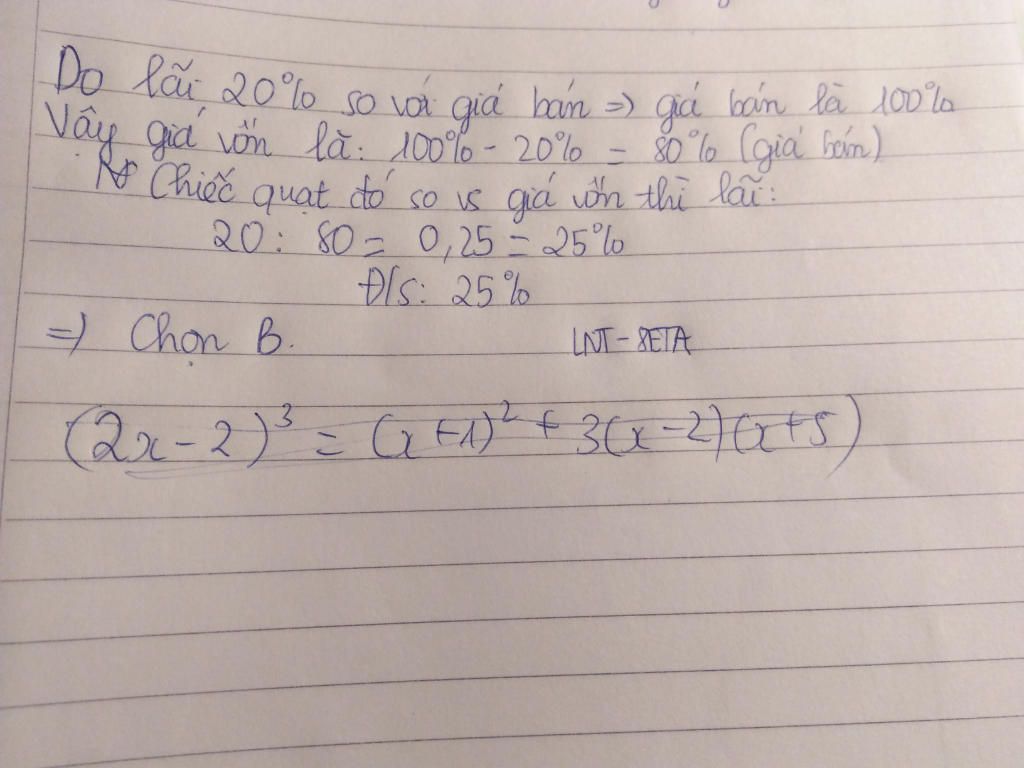 Do lãi 20% so với giá bán => giá bán là 100%
Vậy giá vốn là: 100% - 20% = 80% (giá bán)
Chiếc quạt đó so vs giá vốn thì lãi:
20 : 80 = 0,25 = 25%
Đ/s: 25%
=> Chọn B.
LNT-8ETA
(2x-2)³ = (x+1)² + 3(x-2)(x+5)